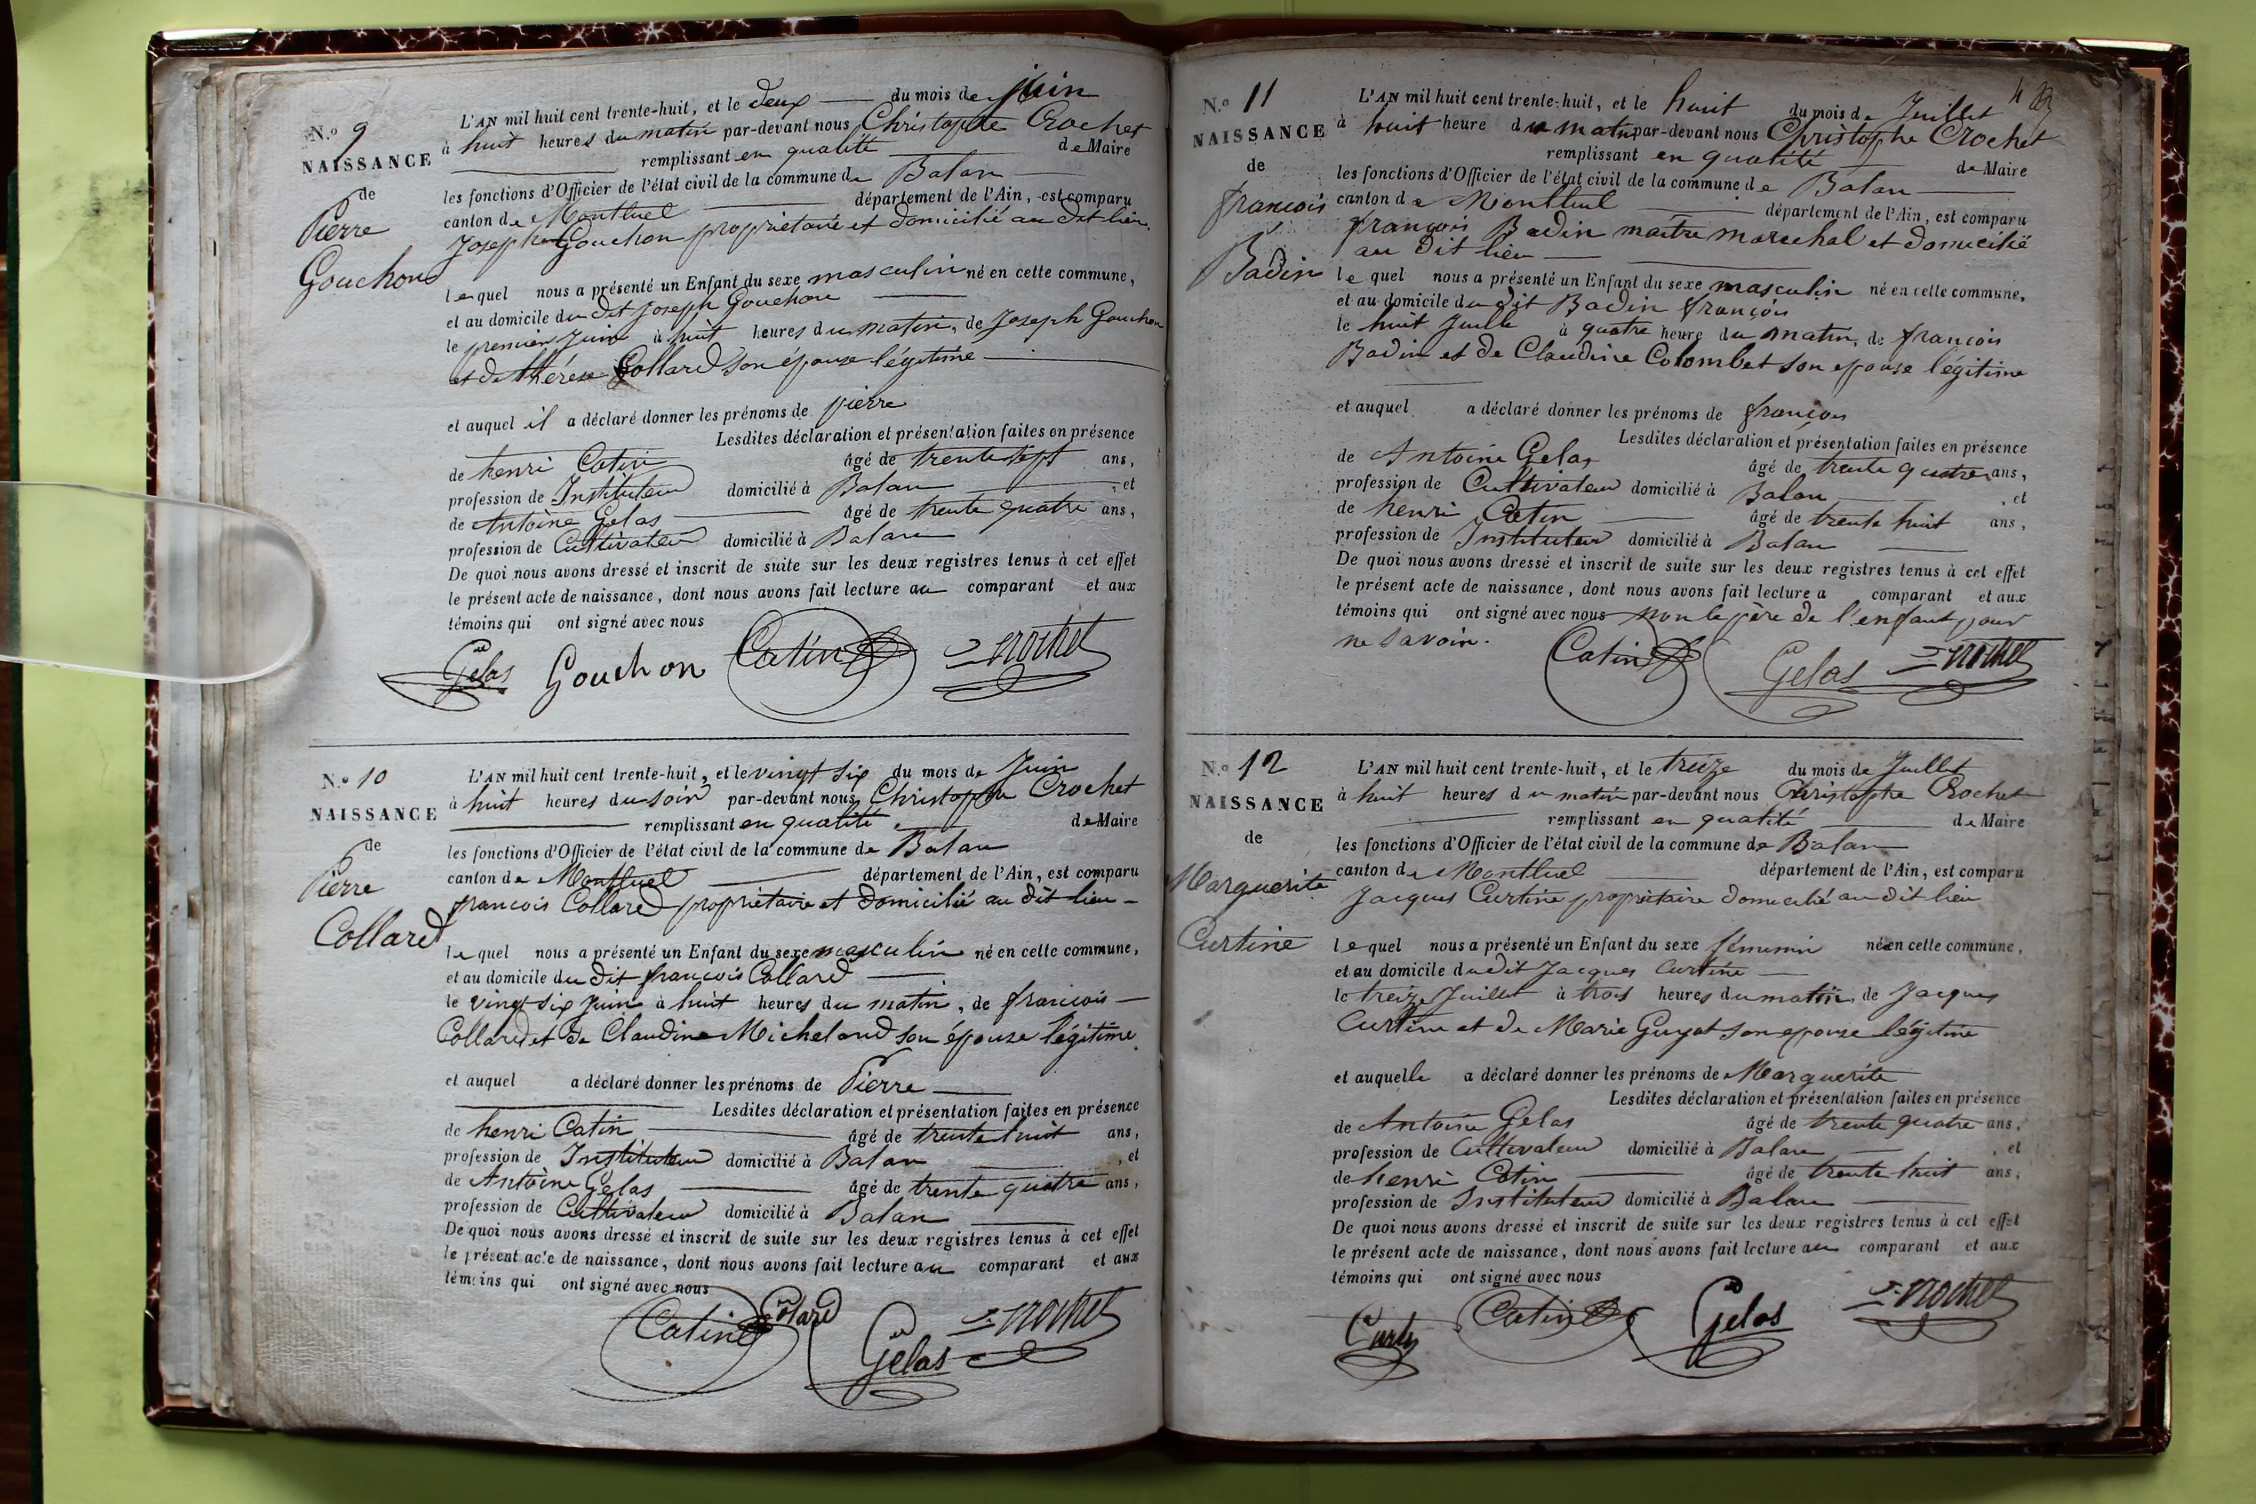 N.o 9
NAISSANCE
de
Pierre
Gouchon
L'AN mil huit cent trente-huit, et le deux du mois de juin
à huit heures du matin par-devant nous Christophe Crochet
remplissant en qualité de Maire
les fonctions d'Officier de l'état civil de la commune de Balan
canton de Montluel département de l'Ain, est comparu
Joseph Gouchon propriétaire et domicilié au dit lieu.
lequel nous a présenté un Enfant du sexe masculin né en cette commune,
et au domicile du dit Joseph Gouchon
le premier Juin à huit heures du matin, de Joseph Gouchon
et de thérèse Collard son épouse légitime
et auquel il a déclaré donner les prénoms de pierre
Lesdites déclaration et présentation faites en présence
de henri Catin âgé de trente sept ans,
profession de Instituteur domicilié à Balan , et
de Antoine Gelas âgé de trente quatre ans,
profession de Cultivateur domicilié à Balan
De quoi nous avons dressé et inscrit de suite sur les deux registres tenus à cet effet
le présent acte de naissance, dont nous avons fait lecture au comparant et aux
témoins qui ont signé avec nous
Gelas Gouchon Catin Crochet
N.o 10
NAISSANCE
de
Pierre
Collard
L'AN mil huit cent trente-huit, et le vingt six du mois de Juin
à huit heures du soir par-devant nous Christophe Crochet
remplissant en qualité de Maire
les fonctions d'Officier de l'état civil de la commune de Balan
canton de Montluel département de l'Ain, est comparu
francois Collard propriétaire et domicilié au dit lieu
lequel nous a présenté un Enfant du sexe masculin né en cette commune,
et au domicile du dit francois Collard
le vingt six juin à huit heures du matin, de francois
Collard et de Claudine Micheland son épouse légitime
et auquel a déclaré donner les prénoms de Pierre
Lesdites déclaration et présentation faites en présence
de henri Catin âgé de trente huit ans,
profession de Instituteur domicilié à Balan , et
de Antoine Gelas âgé de trente quatre ans,
profession de Cultivateur domicilié à Balan
De quoi nous avons dressé et inscrit de suite sur les deux registres tenus à cet effet
le présent acte de naissance, dont nous avons fait lecture au comparant et aux
témoins qui ont signé avec nous
Catin Colard Gelas Crochet
4
N.o 11
NAISSANCE
de
francois
Badin
L'AN mil huit cent trente-huit, et le huit du mois de Juillet
à huit heure du matin par-devant nous Christophe Crochet
remplissant en qualité de Maire
les fonctions d'Officier de l'état civil de la commune de Balan
canton de Montluel département de l'Ain, est comparu
françois Badin maitre marechal et domicilié
au dit lieu
lequel nous a présenté un Enfant du sexe masculin né en cette commune,
et au domicile du dit Badin françois
le huit Juille à quatre heure du matin, de francois
Badin et de Claudine Colombet son epouse légitime
et auquel a déclaré donner les prénoms de françois
Lesdites déclaration et présentation faites en présence
de Antoine Gelas âgé de trente quatre ans,
profession de Cultivateur domicilié à Balan , et
de henri Catin âgé de trente huit ans,
profession de Instituteur domicilié à Balan
De quoi nous avons dressé et inscrit de suite sur les deux registres tenus à cet effet
le présent acte de naissance, dont nous avons fait lecture a comparant et aux
témoins qui ont signé avec nous non le père de l'enfant pour
ne savoir.
Catin Gelas Crochet
N.o 12
NAISSANCE
de
Marguerite
Curtine
L'AN mil huit cent trente-huit, et le treize du mois de Juillet
à huit heures du matin par-devant nous Christophe Crochet
remplissant en qualité de Maire
les fonctions d'Officier de l'état civil de la commune de Balan
canton de Montluel département de l'Ain, est comparu
Jacques Curtine propriétaire domicilié au dit lieu
lequel nous a présenté un Enfant du sexe féminin né en cette commune,
et au domicile du dit Jacques Curtine
le treize Juillet à trois heures du matin, de Jacques
Curtine et de Marie Guyot son epouse légitime
et auquelle a déclaré donner les prénoms de Marguerite
Lesdites déclaration et présentation faites en présence
de Antoine Gelas âgé de trente quatre ans,
profession de Cultivateur domicilié à Balan , et
de henri Catin âgé de trente huit ans,
profession de Instituteur domicilié à Balan
De quoi nous avons dressé et inscrit de suite sur les deux registres tenus à cet effet
le présent acte de naissance, dont nous avons fait lecture au comparant et aux
témoins qui ont signé avec nous
Catin Gelas Crochet